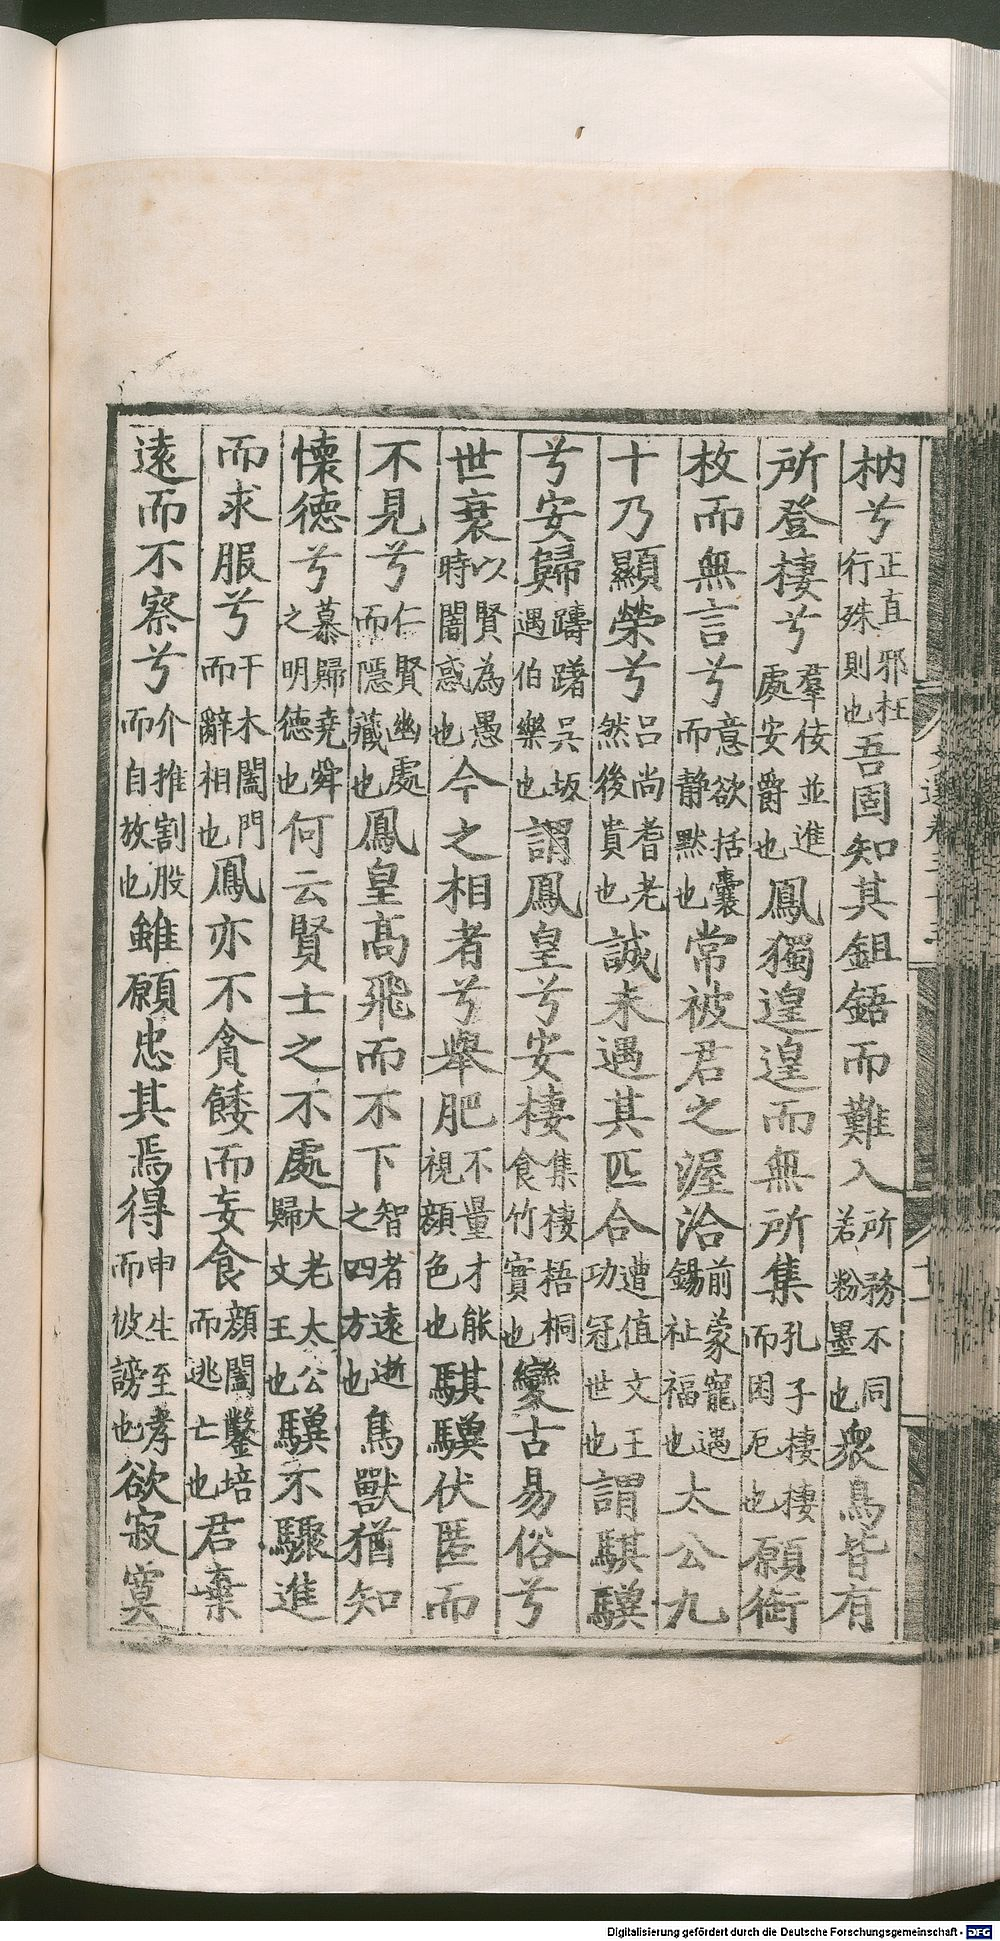 枘兮正直邪枉行殊則也吾固知其鉏鋙而難入所務不同若粉墨也衆鳥皆有
所登棲兮羣佞並進處安爵也鳳獨遑遑而無所集孔子棲棲而困厄也願銜
枚而無言兮意欲括囊而靜默也常被君之渥洽前蒙寵遇錫祉福也太公九
十乃顯榮兮呂尚耆老然後貴也誠未遇其匹合遭值文王功冠世也謂騏驥
兮安歸躊躇吳坂遇伯樂也謂鳳皇兮安棲集棲梧桐食竹實也變古易俗兮
世衰以賢為愚時闇惑也今之相者兮舉肥不量才能視顔色也騏驥伏匿而
不見兮仁賢幽處而隱藏也鳳皇高飛而不下智者遠逝之四方也鳥獸猶知
懷德兮慕歸堯舜之明德也何云賢士之不處大老太公歸文王也驥不驟進
而求服兮干木闔門而辭相也鳳亦不貪餧而妄食顔闔鑿培而逃亡也君棄
遠而不察兮介推割股而自放也雖願忠其焉得申生至孝而被謗也欲寂寞
Digitalisierung gefördert durch die Deutsche Forschungsgemeinschaft - DFG